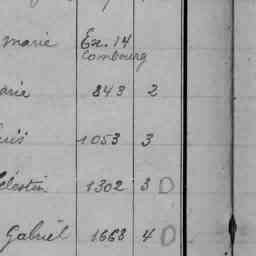 marie Ex. 14
Combourg
arie 843 2
uis 1053 3
élestin 1302 3 D
Gabriel 1668 4 D